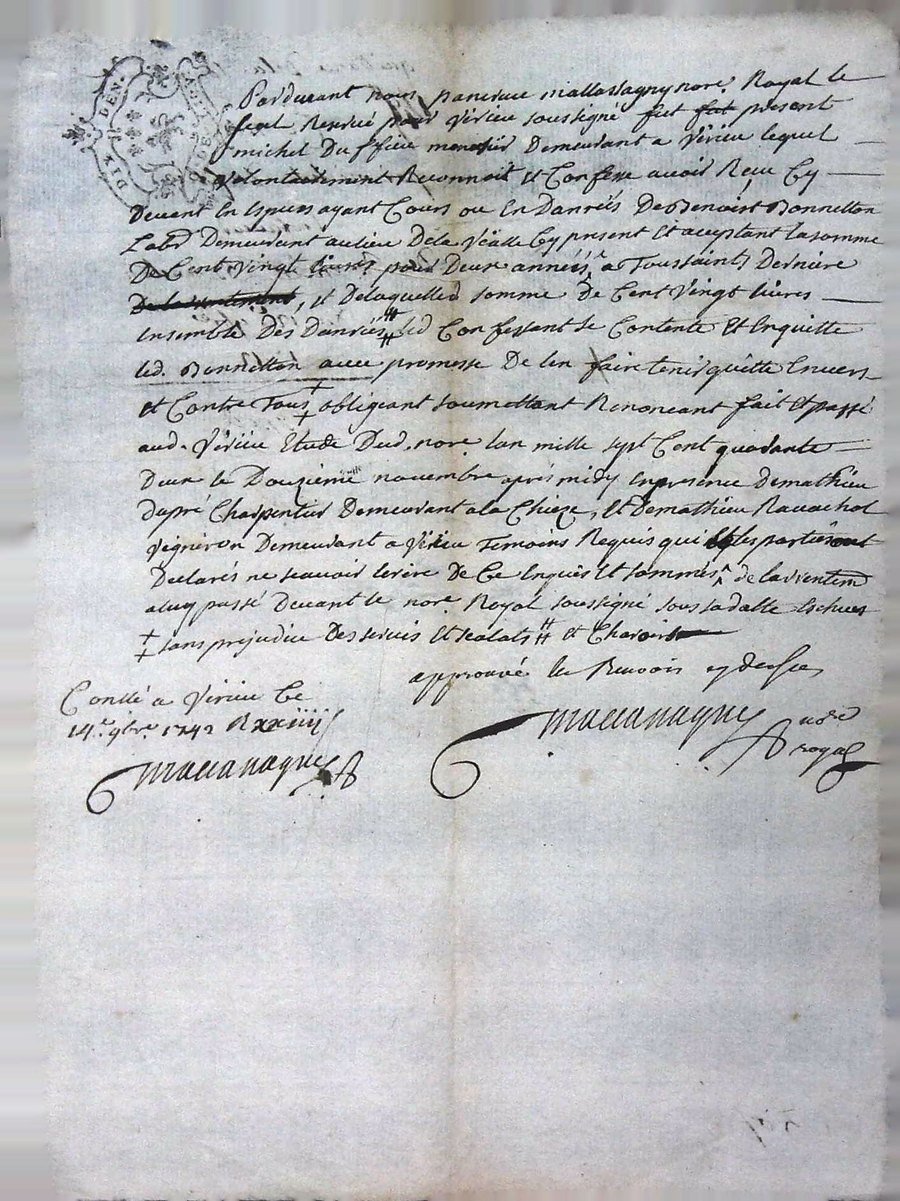 DIX DEN.
Pardevant nous pancrace mallassagny nore. Royal le
seul Reservé pour virieu soussigné fut fut present
michel Duffieu Demeurant a virieu lequel
volontairement Reconnoit et Confesse avoir Receu Cy
Devent En Especes ayant Cours ou En Danrées De Benoist Bonnetton
Labr Demeurent au lieu De la Cy present Et aceptant la somme
De Cent vingt livres pour Deux années, a Toussaints Derniere
, et De laquelle somme De Cent vingt livres
Ensemble Des Danrées led Confessant Se Contente Et Enquitte
led. Bonnetton avec promesse De len faire tenir quitte Envers
et Contre Tous obligeant soumettant Renonceant fait Et passé
aud. virieu Etude Dud. nore. lan mille sept Cent quarante
Deux le Douzieme novembre aprés midy En presence De mathieu
dupré Charpentier Demeurant a la Chieze, Et De mathieu Ravachol
vigneron Demeurant a virieu Temoins Requis qui les parties ont
Declarés ne scavoir Ecrire De Ce Enquis Et sommés de
a luy passé Devant le nore. Royal soussigné sous sa datte
sans prejudice Des servis Et et
approuvé les Renvois cy dessus
Conllé a virieu Ce
14e. 9bre. 1742 R
nore
royal